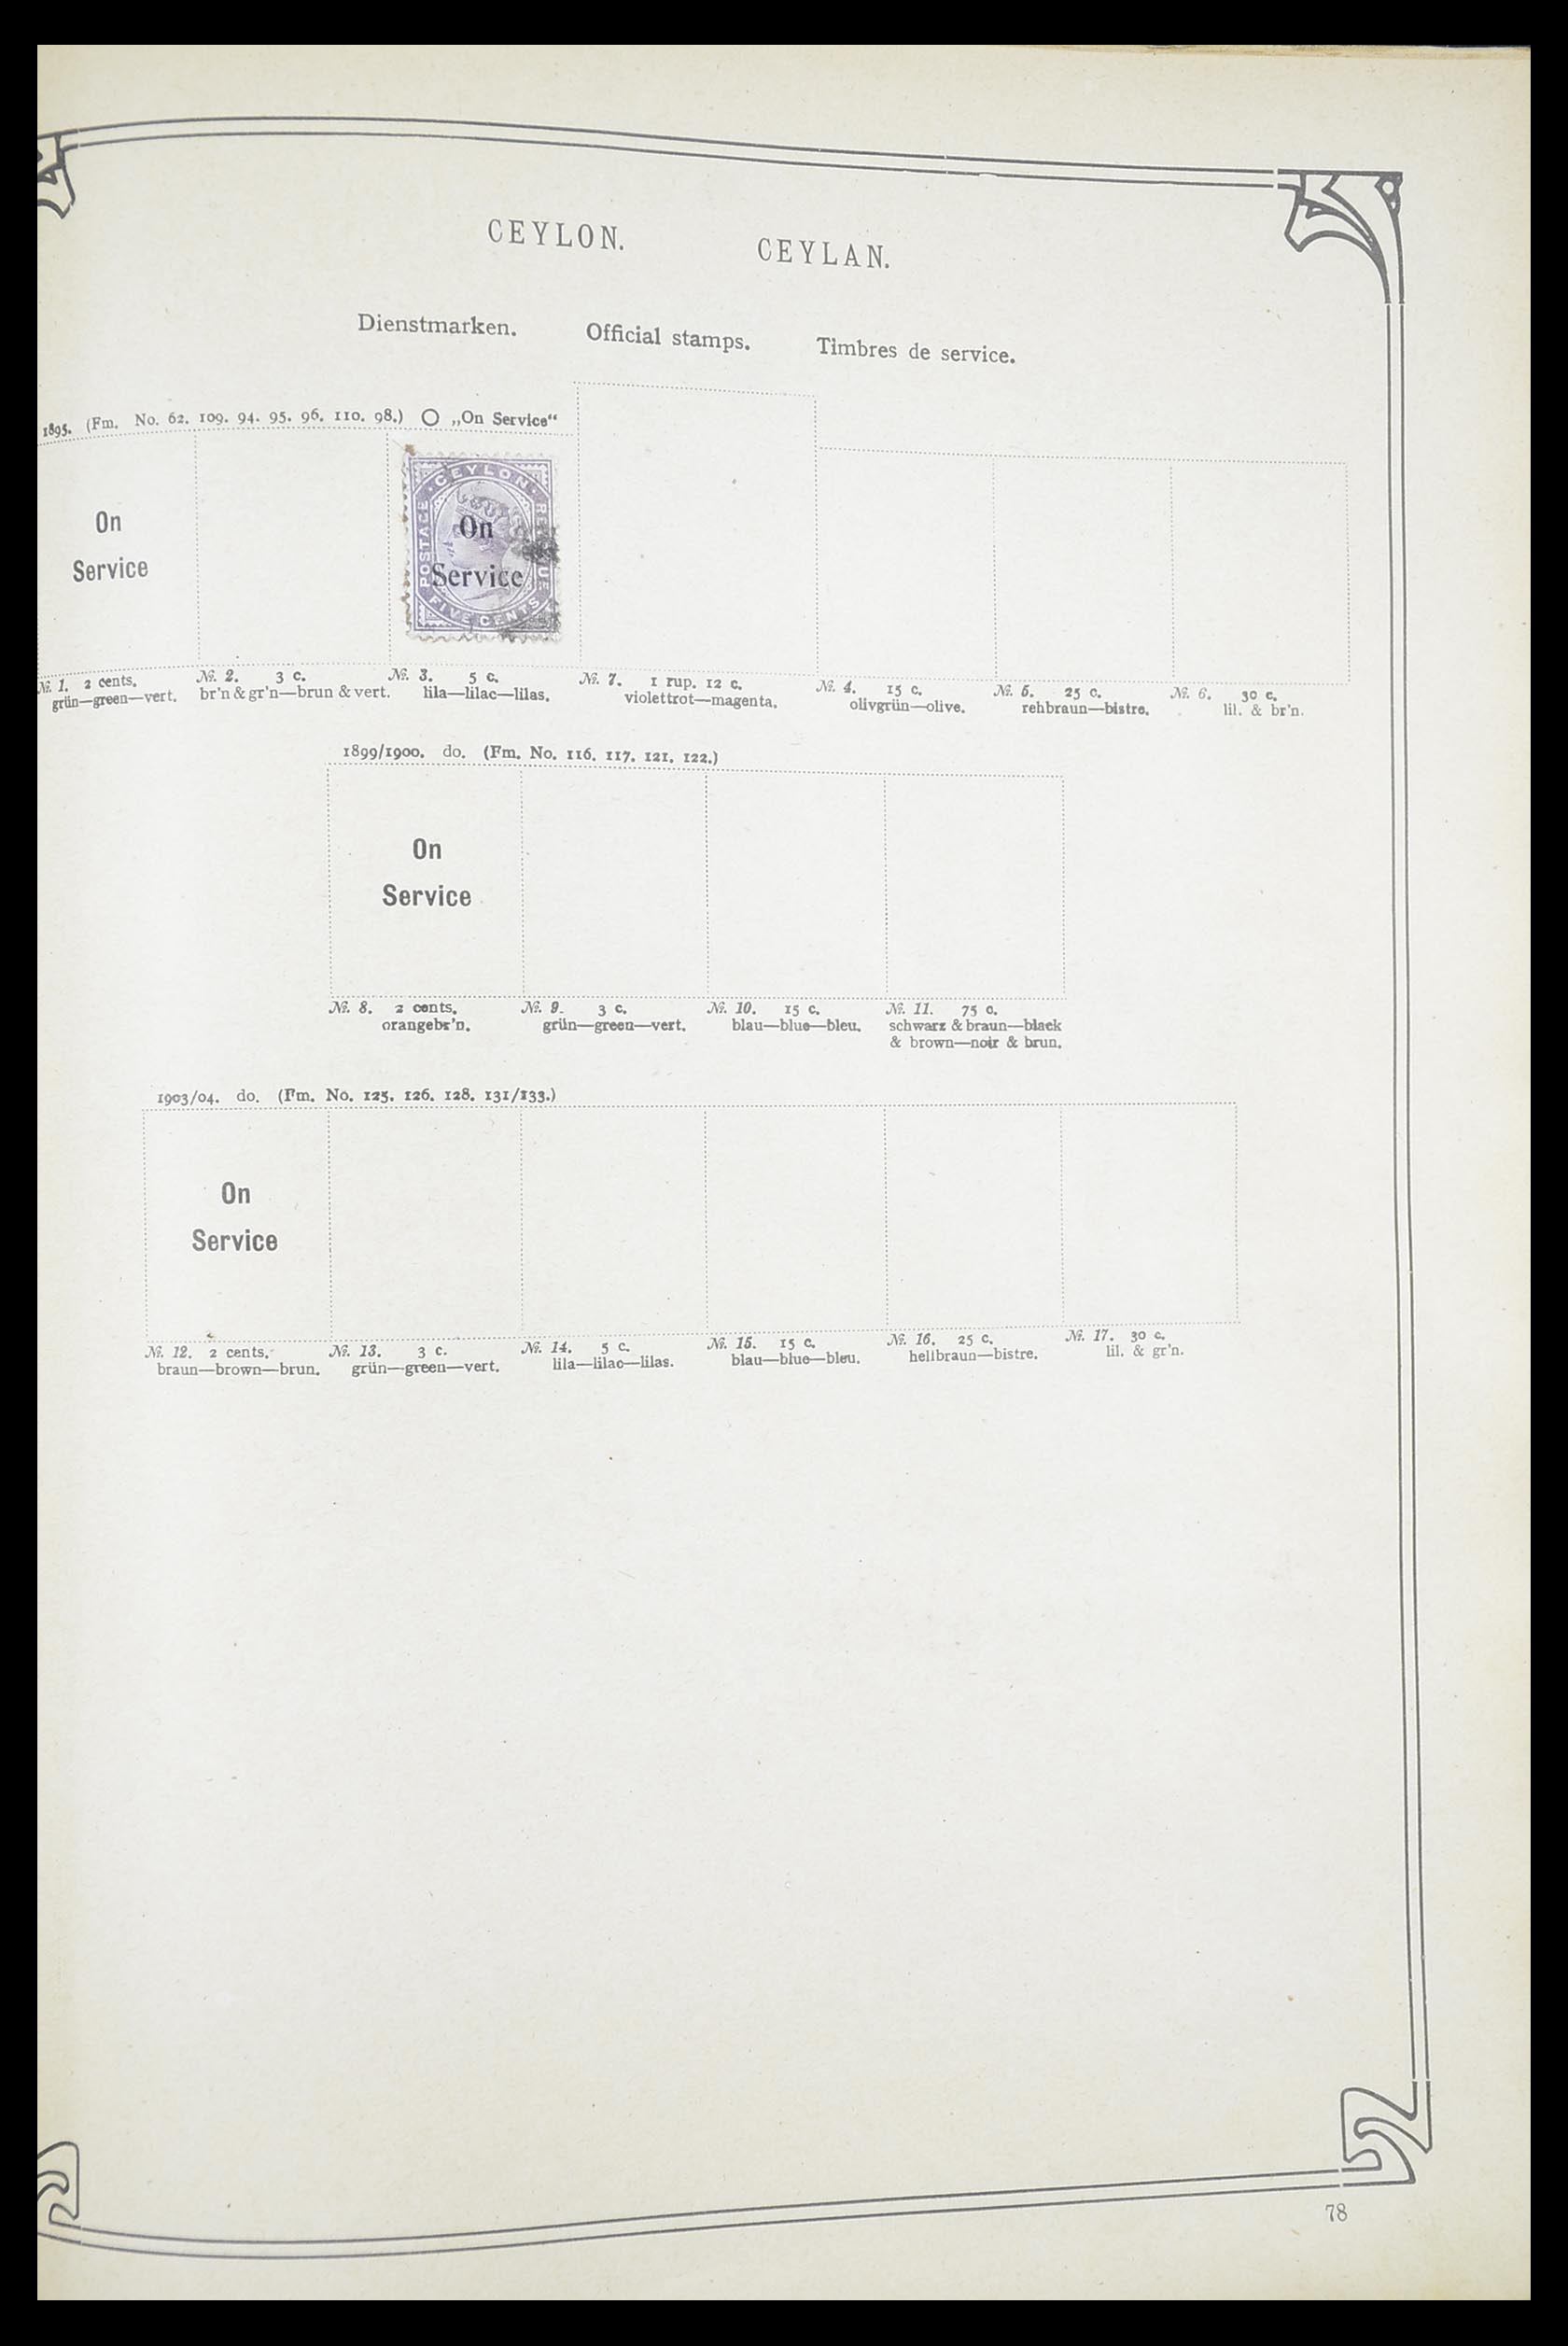 CEYLON. CEYLAN.
Dienstmarken. Official stamps. Timbres de service.
1895. (Fm. No. 62. 109. 94. 95. 96. 110. 98.) O „On Service“
On
Service
CEYLON
POSTAGE
REVENUE
On
Service
FIVE CENTS
№. 1. 2 cents.
grün—green—vert.
№. 2. 3 c.
br'n & gr'n—brun & vert.
№. 3. 5 c.
lila—lilac—lilas.
№. 7. 1 rup. 12 c.
violettrot—magenta.
№. 4. 15 c.
olivgrün—olive.
№. 5. 25 c.
rehbraun—bistre.
№. 6. 30 c.
lil. & br'n.
1899/1900. do. (Fm. No. 116. 117. 121. 122.)
On
Service
№. 8. 2 cents.
orangebr'n.
№. 9. 3 c.
grün—green—vert.
№. 10. 15 c.
blau—blue—bleu.
№. 11. 75 c.
schwarz & braun—black
& brown—noir & brun.
1903/04. do. (Fm. No. 125. 126. 128. 131/133.)
On
Service
№. 12. 2 cents.
braun—brown—brun.
№. 13. 3 c.
grün—green—vert.
№. 14. 5 c.
lila—lilac—lilas.
№. 15. 15 c.
blau—blue—bleu.
№. 16. 25 c.
hellbraun—bistre.
№. 17. 30 c.
lil. & gr'n.
78